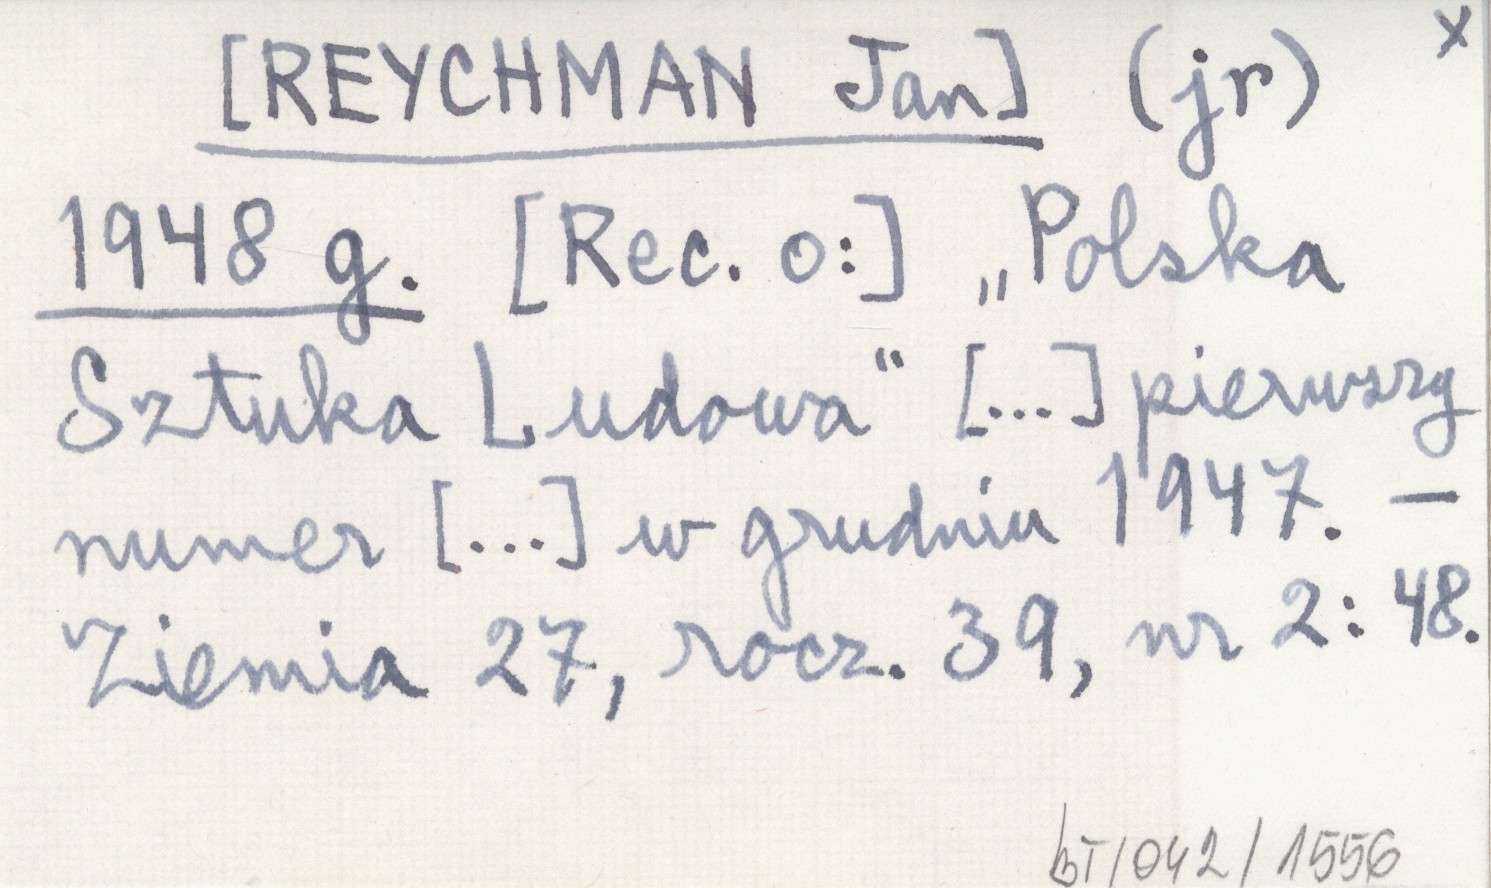 [REYCHMAN Jan] (jr) x
1948 g. [Rec. o:] „Polska
Sztuka Ludowa“ [...] pierwszy
numer [...] w grudniu 1947. —
Ziemia 27, rocz. 39, nr 2: 48.
bT/042/1556